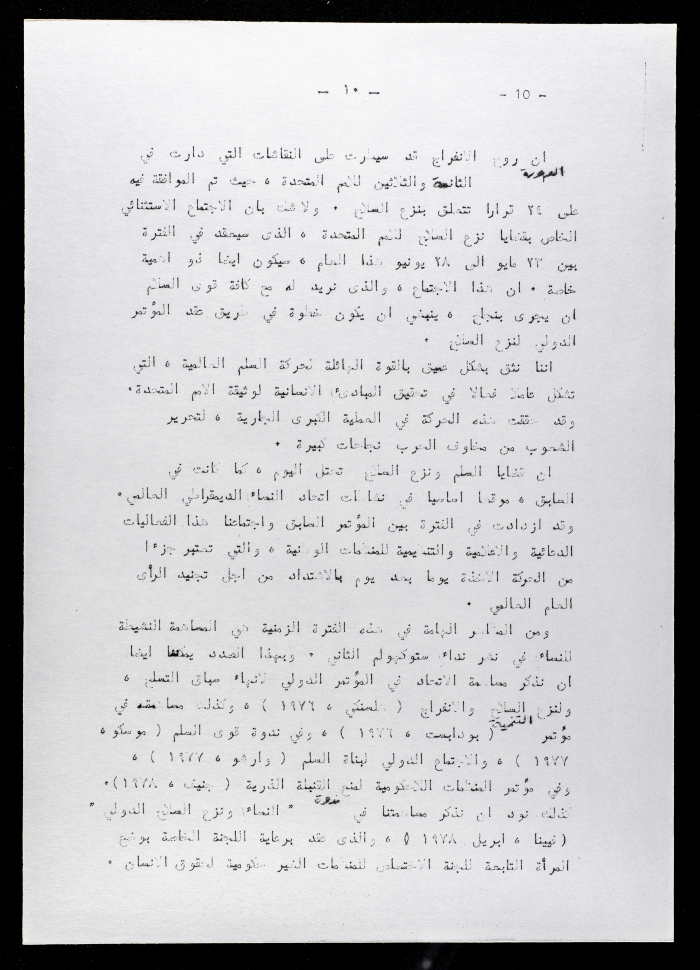 - ١٠ - - 10 -
ان روح الانفراج قد سيطرت على النقاشات التي دارت في
الدورة الثانية والثلاثين للامم المتحدة ، حيث تم الموافقة فيه
على ٢٤ قرارا تتعلق بنزع السلاح . ولاشك بان الاجتماع الاستثنائي
الخاص بقضايا نزع السلاح للامم المتحدة ، الذى سيعقد في الفترة
بين ٢٣ مايو الى ٢٨ يونيو هذا العام ، سيكون ايضا ذو اهمية
خاصة . ان هذا الاجتماع ، والذى نريد له مع كافة قوى السلام
ان يجرى بنجاح ، ينبغي ان يكون خطوة في طريق عقد المؤتمر
الدولي لنزع السلاح .
اننا نثق بشكل عميق بالقوة الهائلة لحركة السلم العالمية ، التي
تشكل عاملا فعالا في تحقيق المبادئ الانسانية لوثيقة الامم المتحدة .
وقد حققت هذه الحركة في العملية الكبرى الجارية ، لتحرير
الشعوب من مخاوف الحرب نجاحات كبيرة .
ان قضايا السلم ونزع السلاح تحتل اليوم ، كما كانت في
السابق ، موقعا اساسيا في نشاطات اتحاد النساء الديمقراطي العالمي .
وقد ازدادت في الفترة بين المؤتمر السابق واجتماعنا هذا الفعاليات
الدعائية والاعلامية والتنظيمية للمنظمات الوطنية ، والتي تعتبر جزءا
من الحركة الاخذة يوما بعد يوم بالاشتداد من اجل تجنيد الرأى
العام العالمي .
ومن المظاهر الهامة في هذه الفترة الزمنية هي المساهمة النشيطة
للنساء في نشر نداء ستوكهولم الثاني . وبهذا الصدد يمكننا ايضا
ان نذكر مساهمة الاتحاد في المؤتمر الدولي لانهاء سباق التسلح ،
ولنزع السلاح والانفراج ( هلسنكي ، ١٩٧٦ ) ، وكذلك مساهمته في
مؤتمر التنمية ( بودابست ، ١٩٧٦ ) ، وفي ندوة قوى السلم ( موسكو ،
١٩٧٧ ) ، والاجتماع الدولي لبناة السلم ( وارشو ، ١٩٧٧ ) ،
وفي مؤتمر المنظمات اللاحكومية لمنع القنبلة الذرية ( جنيف ، ١٩٧٨ ) .
كذلك نود ان نذكر مساهمتنا في ندوة " النساء ونزع السلاح الدولي "
( فيينا ، ابريل ١٩٧٨ ) ، والذى عقد برعاية اللجنة الخاصة بوضع
المرأة التابعة للجنة الاختصاص للمنظمات الغير حكومية لحقوق الانسان .